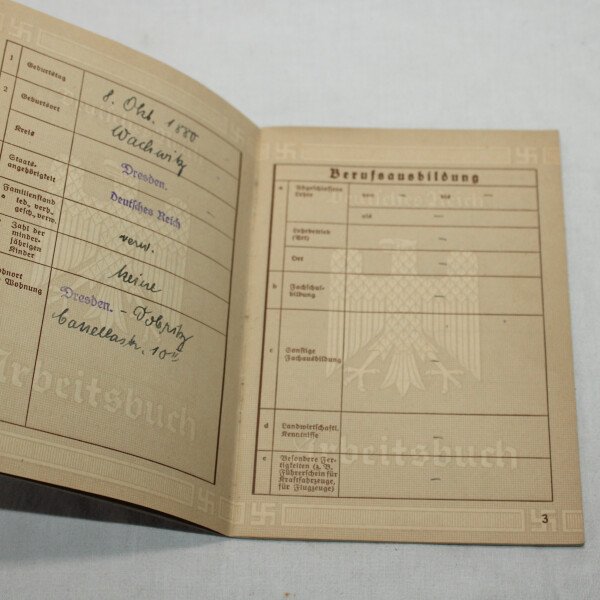 1 Geburtstag 8. Okt. 1880
2 Geburtsort Wachwitz
Kreis Dresden.
Staats-
angehörigkeit Deutsches Reich
Familienstand
led., verh.,
gesch., verw. verw.
Zahl der
minder-
jährigen
Kinder keine
Wohnung Dresden. - Dobritz
Casellastr. 10
Arbeitsbuch
Berufsausbildung
a Abgeschlossene
Lehre von — bis —
als —
Lehrbetrieb
(Art) —
Ort —
b Fachschul-
bildung —
c Sonstige
Fachausbildung —
d Landwirtschaftl.
Kenntnisse —
e Besondere Fer-
tigkeiten (z. B.
Führerschein für
Kraftfahrzeuge,
für Flugzeuge) —
Deutsches Reich
Arbeitsbuch
3